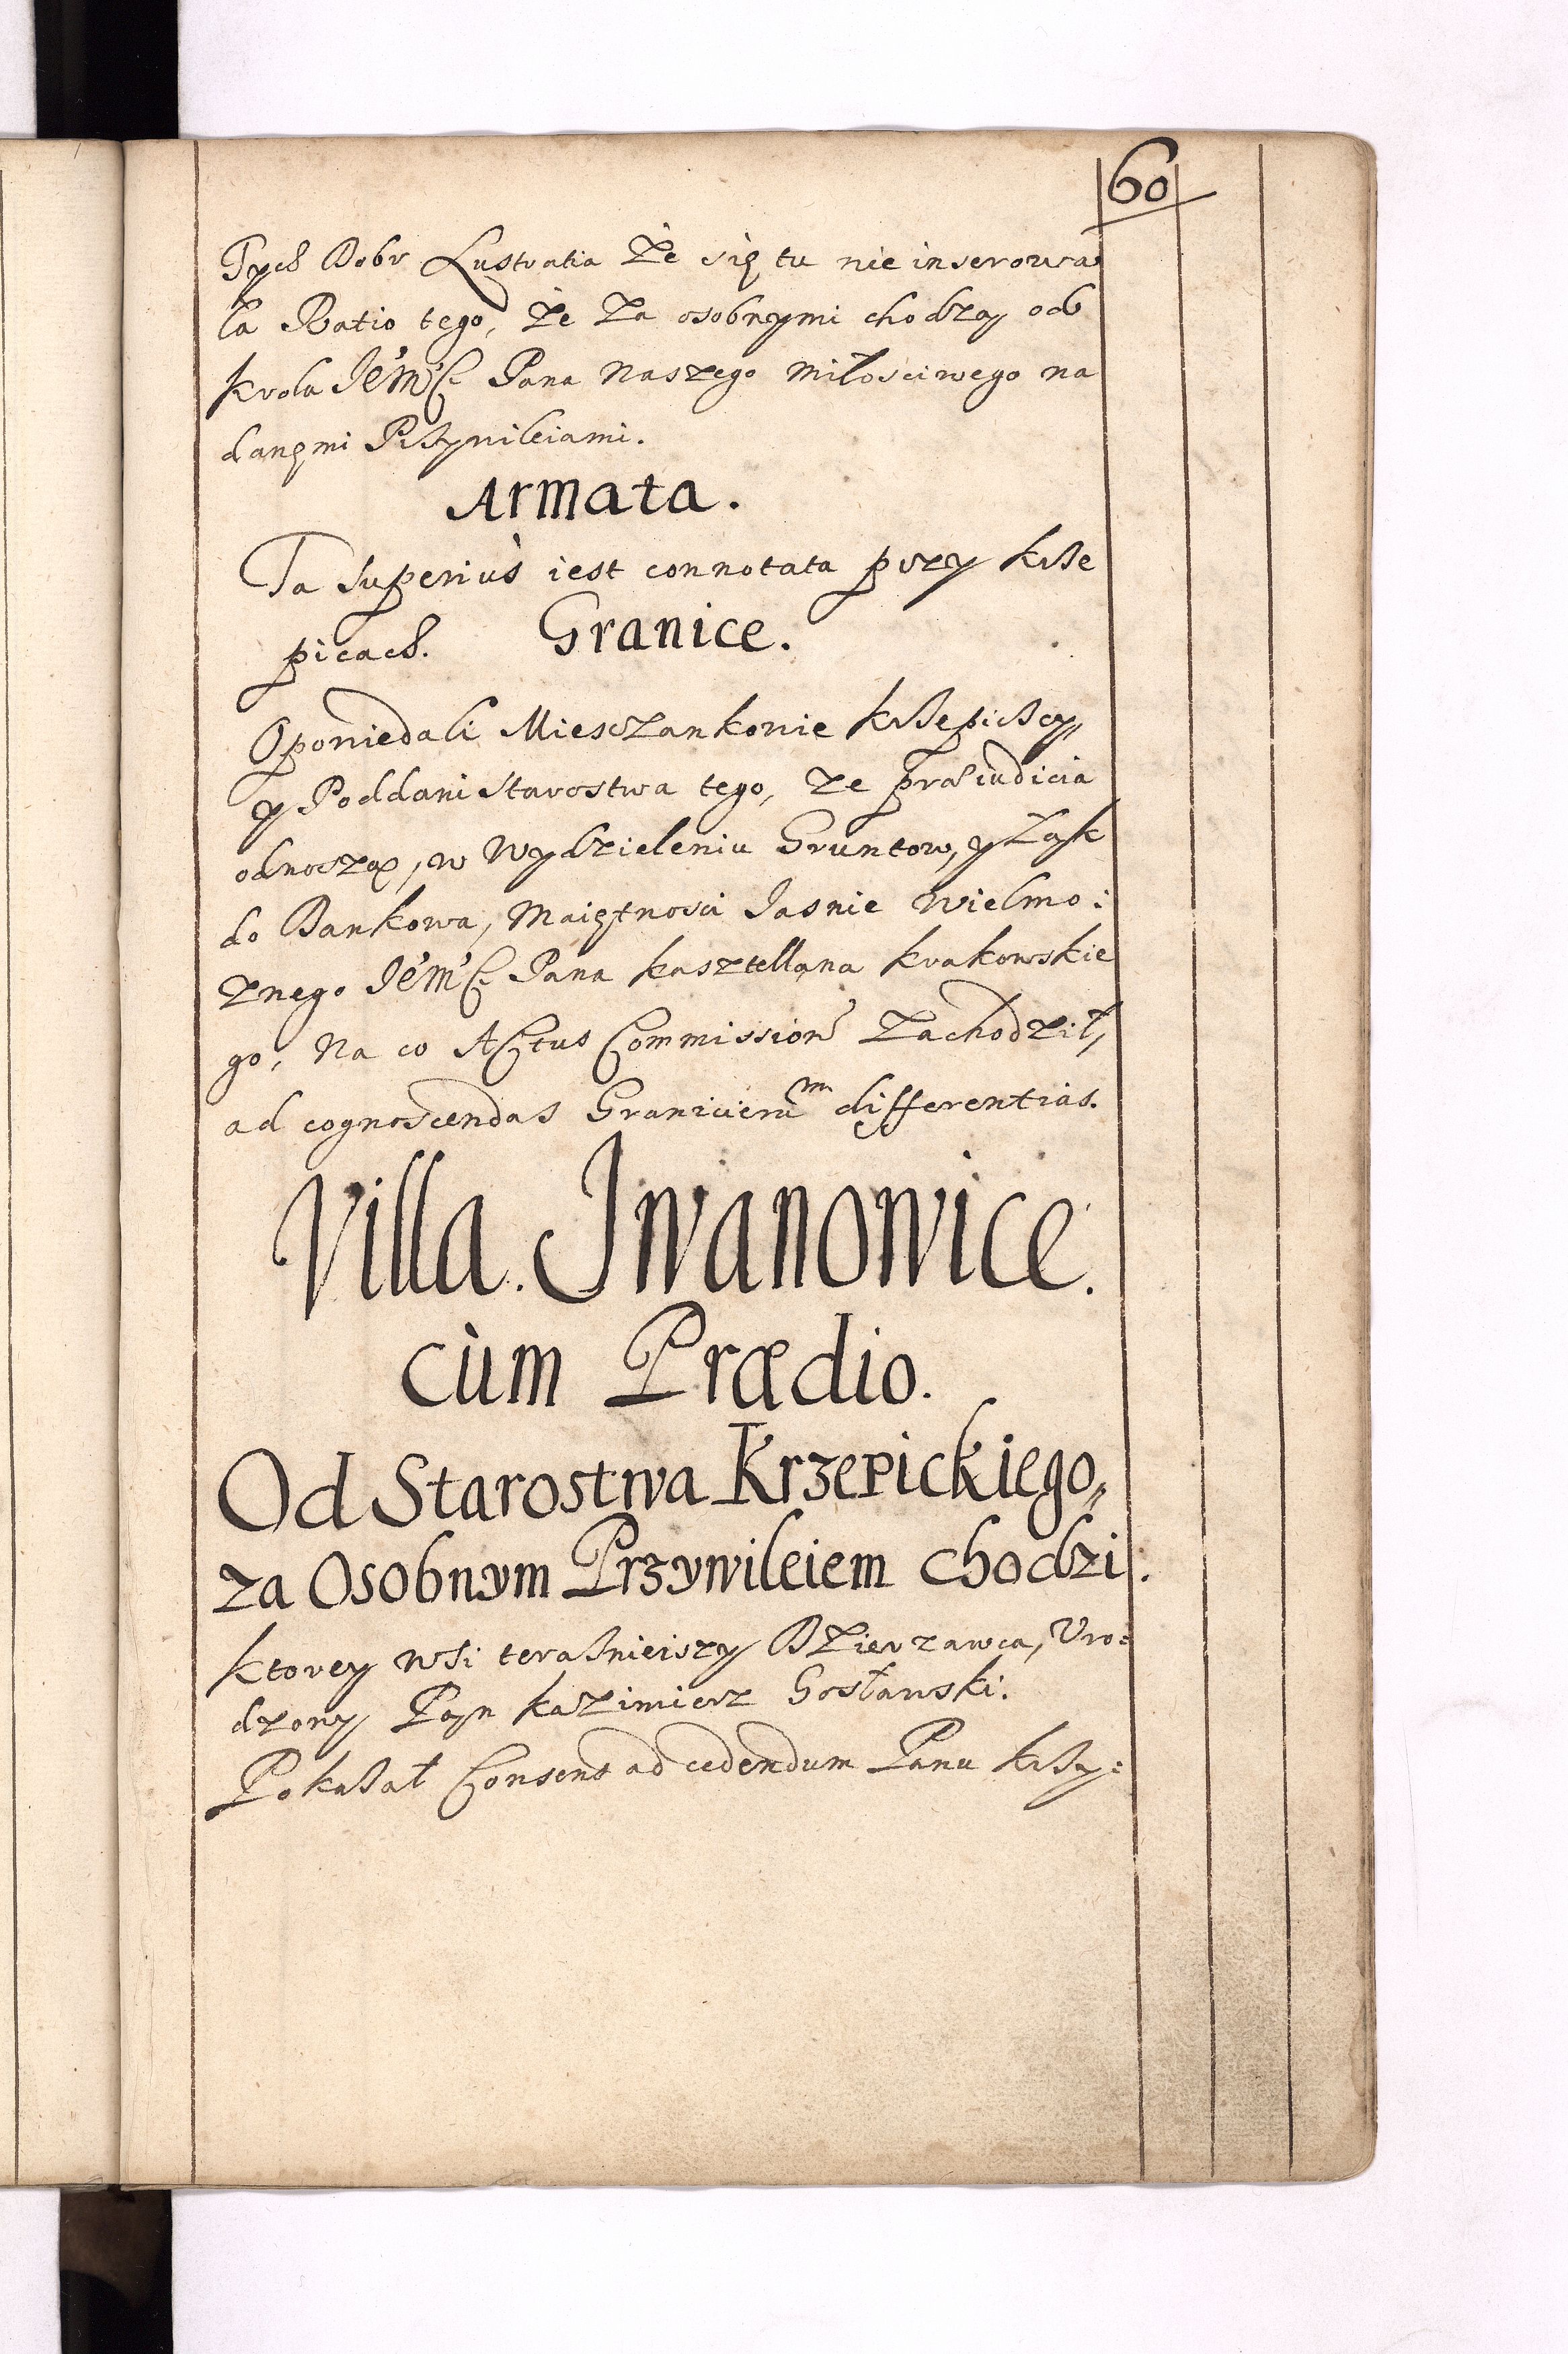 60
Tych Dobr Lustratia że się tu nie inserowa
ła Ratio tego, że za osobnymi chodzą od
Krola Je'm'C. Pana Naszego Miłosciwego na
danęmi Przywileiami.
Armata.
Ta superiùs iest connotata przy Krze
picach. Granice.
Opowiedali Miesczankowie Krzepiccy,,
y Poddani Starostwa tego, ze præiudicia
odnoszą, w Wydzieleniu Gruntow, y Łąk
do Dankowa, Maiętnosci Jasnie Wielmo:
znego Je'm'C. Pana Kasztellana Krakowskie
go, Na co Actus Commission' zachodził,
ad cognoscendas Granicieru m differentias.
Villa. Jwanowice.
cùm Prædio.
Od Starostwa Krzepickiego,,
za Osobnym Przywileiem chodzi.
Ktorey wsi teraznieiszy Dzierzawca, Vro:
dzony Pan Kazimierz Gosławski.
Pokazał Consens ad cedendum Panu Krzy: